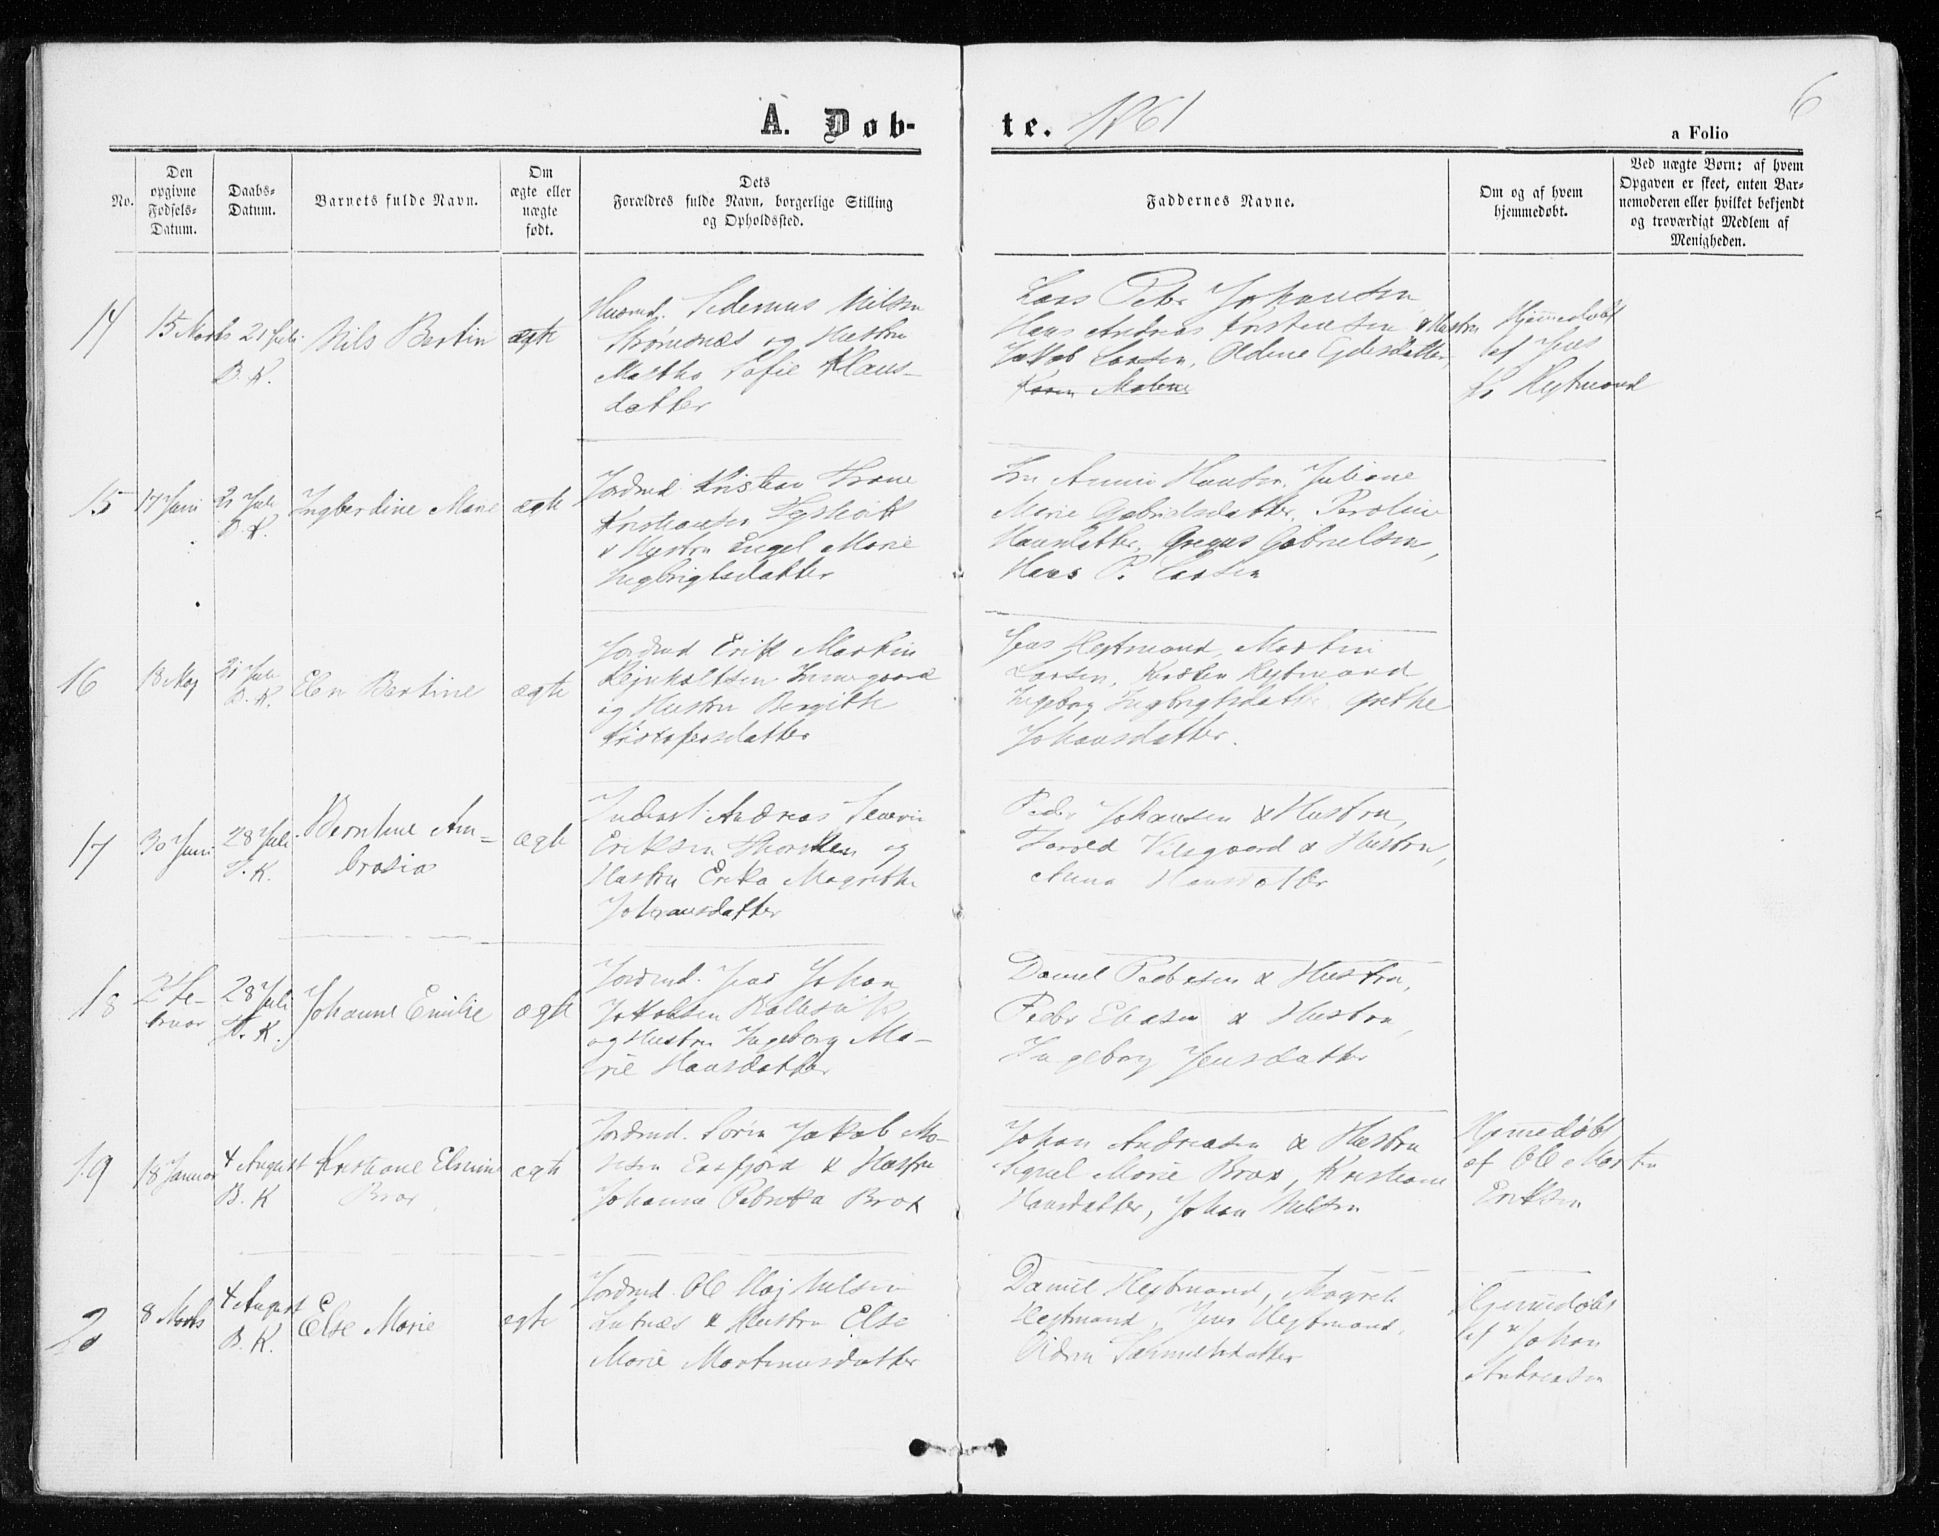 A. Døb-
te. 1861
6
a Folio
No.
Den opgivne Fødsels-Datum.
Daabs-Datum.
Barnets fulde Navn.
Om ægte eller uægte født.
Dets Forældres fulde Navn, borgerlige Stilling og Opholdssted.
Faddernes Navne.
Om og af hvem hjemmedøbt.
Ved uægte Børn: af hvem Opgaven er skeet, enten Barnemoderen eller hvilket bekjendt og troværdigt Medlem af Menigheden.
14
15 Marts
21 Juli
B. K.
Nils Bertin
ægte
Nilsen
Strømsnæs og Hustru
Martha Sofie Klaus-
datter
Lars Peder Johansen
Hans Andreas Kristensen & Hustru
Jakob Larsen, Oldine
Karen Malene
Hjemmedøbt
af Jens
Hejtmand
15
17 Juni
21 Juli
B. K.
Ingberdine Marie
ægte
Jordmd. Kristian
Kristiansen
& Hustru Engel Marie
Ingbrigtsdatter
Hansen, Juliane
Marie Gabrielsdatter,
Hansdatter, Gabrielsen,
Hans P. Larsen
16
18 Maj
21 Juli
B. K.
Elen Bertine
ægte
Jordmd Erik Martin
Rejnholtsen
og Hustru Bergithe
Kristofersdatter
Jens Hejtmand, Martin
Larsen, Kirsten Hejtmand
Ingeborg Ingbrigtsdatter Grethe
Johansdatter.
17
30 Juni
28 Juli
K.
Berntine Am-
brosia
ægte
Inderst Andreas
Eriksen og
Hustru Erika Magrethe
Johansdatter
Peder Johansen & Hustru,
& Hustru,
Anna Hansdatter
18
2 Fe-
bruar
28 Juli
K.
Johanne Emilie
ægte
Jordmd. Jens Johan
Jakobsen
og Hustru Ingeborg Ma-
rie Hansdatter
Daniel Pedersen & Hustru,
Peder & Hustru,
Ingeborg Jensdatter
19
18 Januar
4 August
B. K
Kristiane Elmine
Brox
ægte
Jordmd. Sørin Jakob Mo-
sesen & Hustru
Johanna Petrika Brox
Johan Andreasen & Hustru
Marie Brox, Kristiane
Hansdatter, Johan Nilsen
Hjemmedøbt
af Ole Morten
Eriksen
20
8 Marts
4 August
B. K.
Else Marie
ægte
Jordmd. Ole Maj Nilsen
& Hustru Else
Marie Martinusdatter
Daniel Hejtmand, Magrete
Hejtmand, Jens Hejtmand,
Samuelsdatter
Hjemmedøbt
af Johan
Andreasen